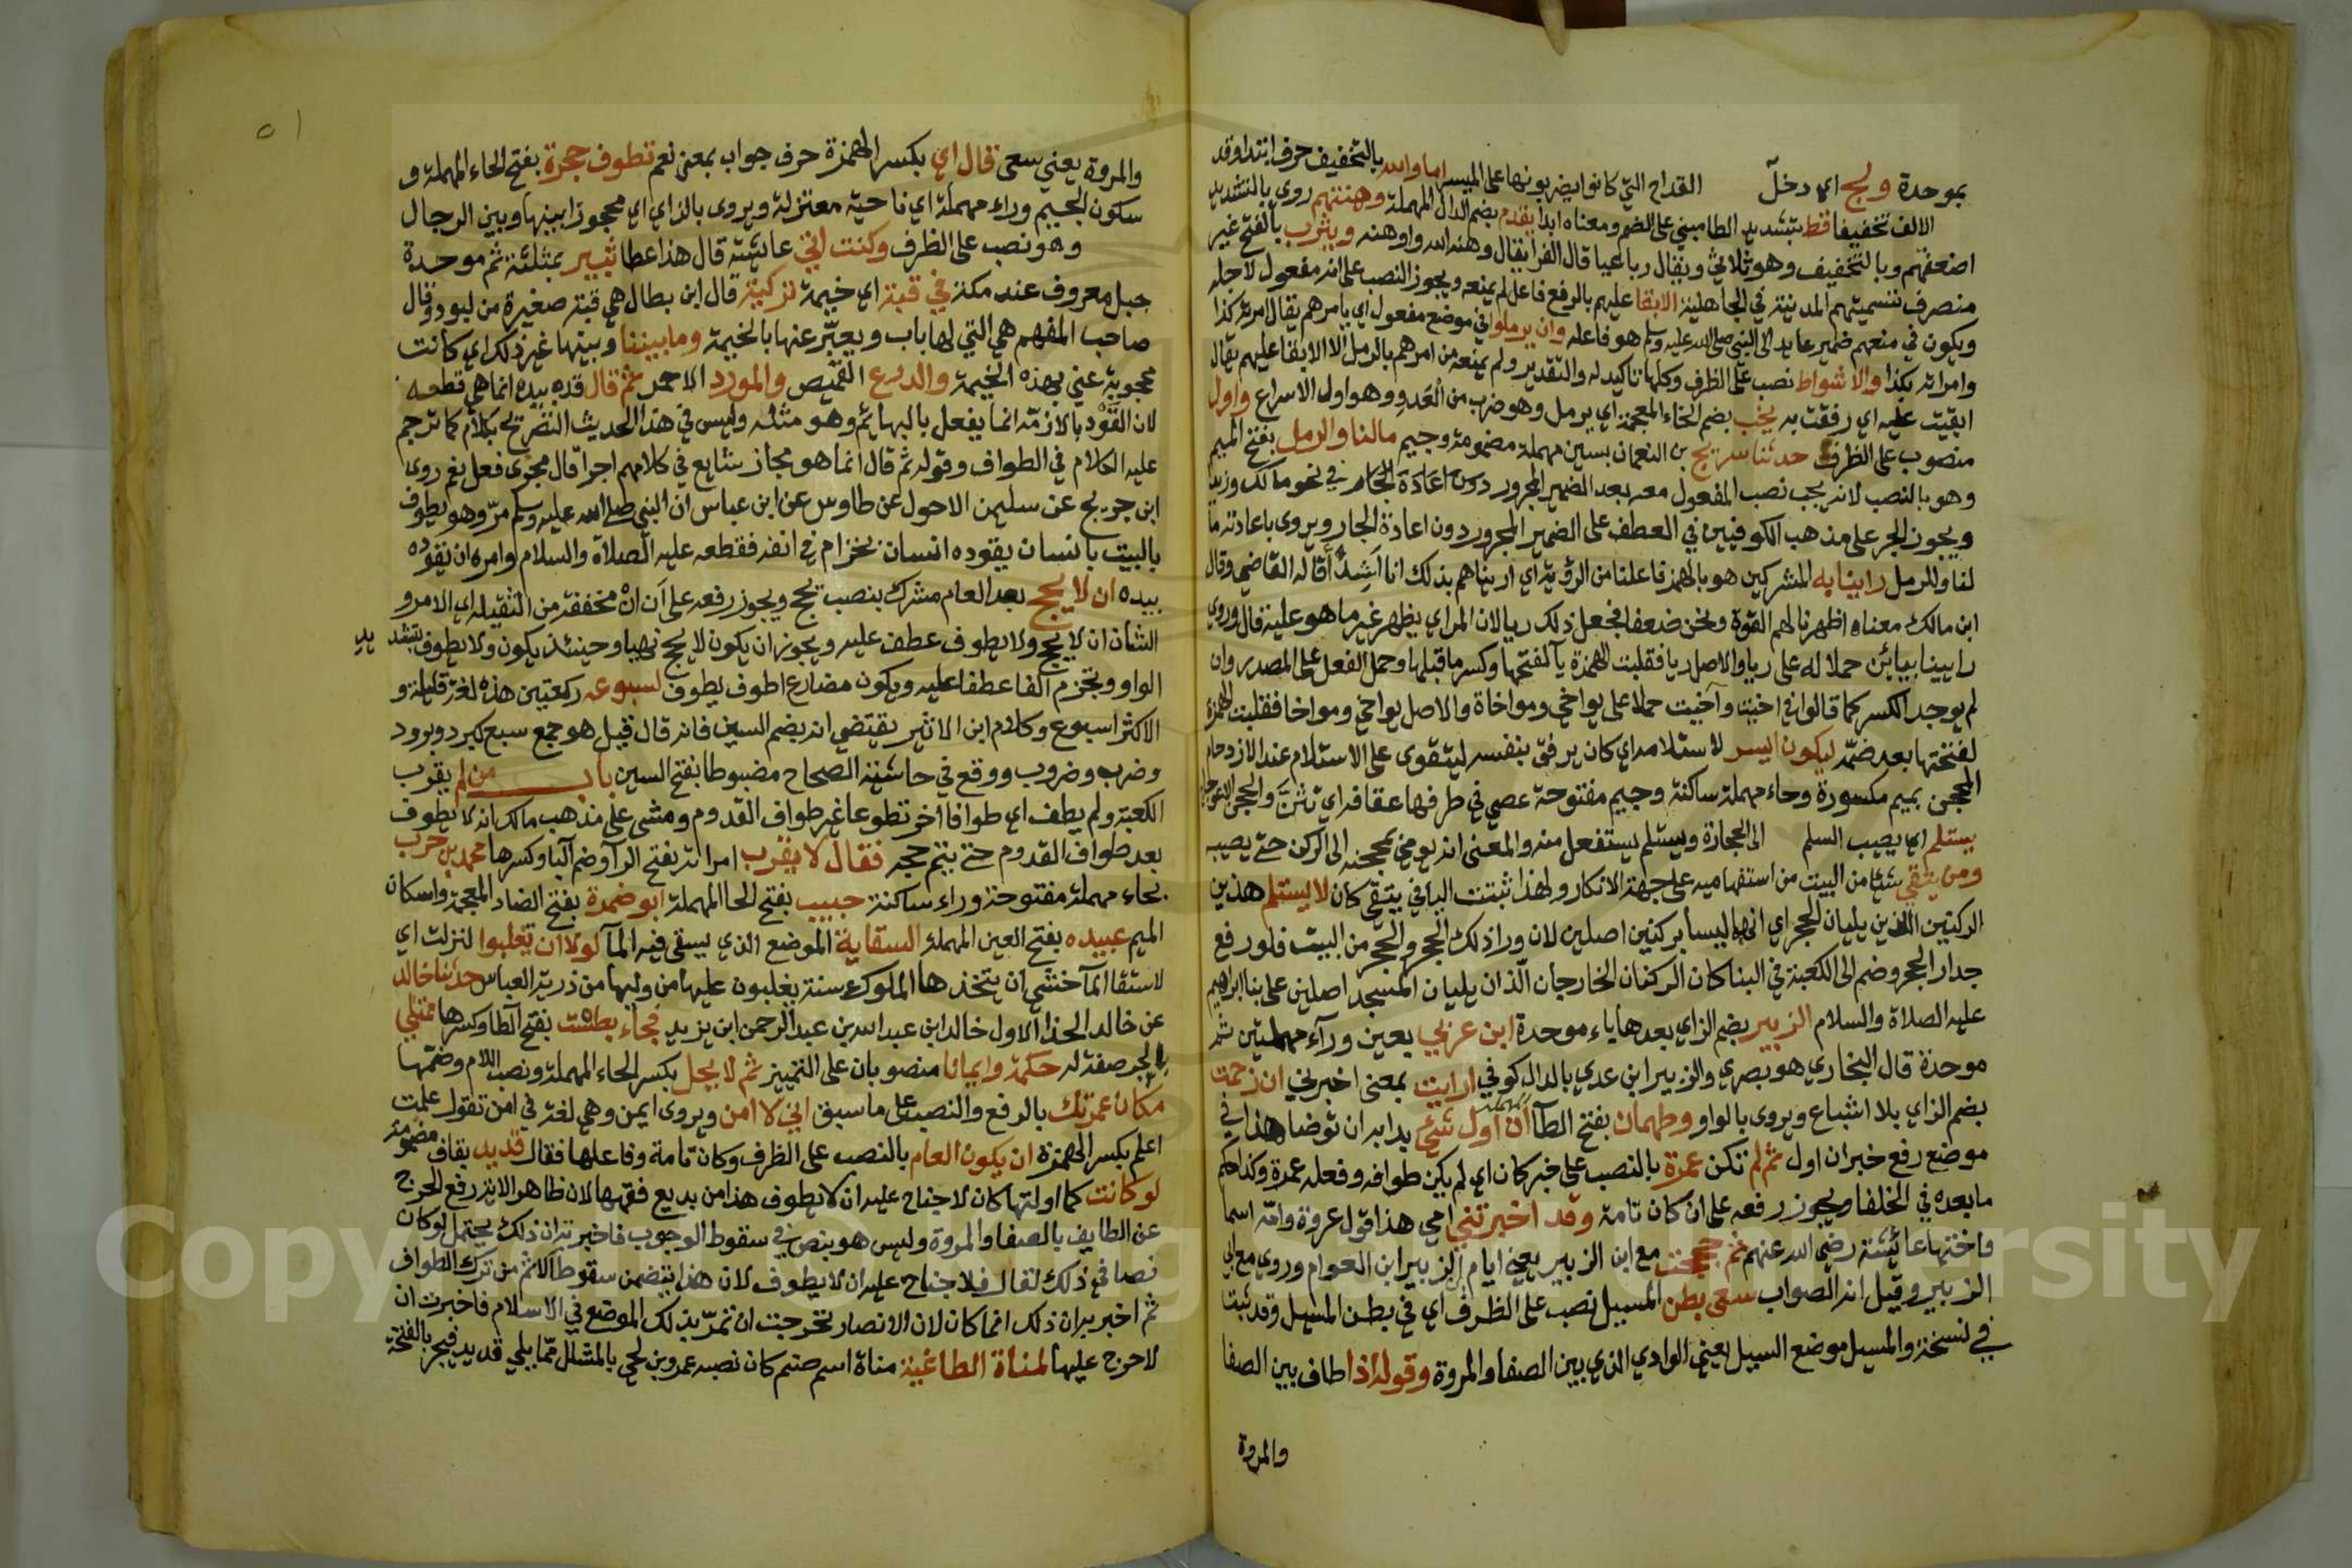 بموحدة ولج اي دخل القداح التي كانوا يضربون بها على الميسر اما والله بالتخفيف حرف ابتدا وقد
الالف تخفيفا قط بتشديد الطا مبني على الضم ومعناه ابدا يقدم بضم الدال المهملة وهنتهم روي بالتشديد
اضعفهم وبالتخفيف وهو ثلاثي ويقال رباعيا قال الفرا يقال وهنه الله واوهنه ويثرب بالفتح غير
منصرف تسميتهم المدينة في الجاهلية الابقا عليهم بالرفع فاعل لم يمنعه ويجوز النصب على انه مفعول لاجله
ويكون في منعهم ضمير عايد الى النبي صلى الله عليه وسلم هو فاعله وان يرملوا في موضع مفعول اي يامرهم يقال امرته كذا
وامرته بكذا والاشواط نصب على الظرف وكلها تاكيد له والتقدير ولم يمنعه من امرهم بالرمل الا الابقا عليهم يقال
ابقيت عليه اي رفقت به يخب بضم الخاء المعجمة اي يرمل وهو ضرب من العدو وهو اول الاسراع واول
منصوب على الظرف حدثنا سريج بن النعمان بسين مهملة مضمومة وجيم مالنا والرمل بفتح الميم
وهو بالنصب لانه يجب نصب المفعول معه بعد الضمير المجرور دون اعادة الجار في نحو مالك وزيدا
ويجوز الجر على مذهب الكوفيين في العطف على الضمير المجرور دون اعادة الجار ويروى باعادته ما
لنا وللرمل راينا به المشركين هو بالهمز فاعلنا من الرؤية اي اريناهم بذلك انا اشدا قاله القاضي وقال
ابن مالك معناه اظهرنا لهم القوة ونحن ضعفا فجعل ذلك ريا لان المراي يظهر غير ما هو عليه قال وروي
رايينا بيائين حملا له على ريا والاصل ريا فقلبت الهمزة يآ لفتحها وكسر ما قبلها وحمل الفعل على المصدر وان
لم يوجد الكسر كما قالوا في اخيت وآخيت حملا على يواخي ومواخاة والاصل يواخي ومواخا فقلبت الهمزة
لفتحتها بعد ضمة ليكون ايسر لاستلامه اي كان يرفق بنفسه ليتقوى على الاستلام عند الازدحام
المحجن بميم مكسورة وحاء مهملة ساكنة وجيم مفتوحة عصي في طرفها عقافة اي
يستلم اي يصيب السلم الى الحجارة ويستلم يستفعل منه والمعنى انه يومي بمحجنه الى الركن حتى يصيبه
ومن يتقي شئا من البيت من استفهاميه على جهة الانكار ولهذا ثبتت اليا في يتقي كان لا يستلم هذين
الركنين اللذين يليان الحجر اي انهما ليسا بركنين اصلين لان ورا ذلك الحجر والحجر من البيت فلو رفع
جدار الحجر وضم الى الكعبة في البنا كان الركنان الخارجان الذان يليان المسجد اصلين على بنا ابراهيم
عليه الصلاة والسلام الزبير بضم الزاي بعدها ياء موحدة ابن عربي بعين ورآء مهملتين ثم
موحدة قال البخاري هو بصري والزبير ابن عدي بالدال كوفي ارايت بمعنى اخبرني ان زحمت
بضم الزاي بلا اشباع ويروى بالواو وطهمان بفتح الطآ ان اول شئ بدا به ان توضا هذا في
موضع رفع خبر ان اول ثم لم تكن عمرة بالنصب على خبر كان اي لم يكن طوافه وفعله عمرة وكذا حكم
ما بعده في الخلفا ويجوز رفعه على ان كان تامة وقد اخبرتني امي هذا قول عروة وامه اسما
واختها عائشة رضي الله عنهم ثم حججت مع ابن الزبير يعني ايام الزبير ابن العوام وروي مع ابي
الزبير وقيل انه الصواب سعى بطن المسيل نصب على الظرف اي في بطن المسيل وقد ثبت
في نسخة والمسيل موضع السيل يعني الوادي الذي بين الصفا والمروة وقوله اذا طاف بين الصفا
والمروة
٥١
والمروة يعني سعى قال اي بكسر الهمزة حرف جواب بمعنى نعم تطوف حجرة بفتح الحاء المهملة و
سكون الجيم وراء مهملة اي ناحية معتزلة ويروى بالزاي اي محجوزا بينها وبين الرجال
وهو نصب على الظرف وكنت اتي عائشة قال هذا عطا ثبير بمثلثة ثم موحدة
جبل معروف عند مكة في قبة اي خيمة تركية قال ابن بطال هي قبة صغيرة من لبود وقال
صاحب المفهم هي التي لها باب ويعبّر عنها بالخيمة وما بيننا وبينها غير ذلك اي كانت
محجوبة عني بهذه الخيمة والدرع القميص والمورد الاحمر ثم قال قده بيده انما هي قطعه
لان القَوْد بالازمة انما يفعل بالبهائم وهو مثله وليس في هذا الحديث التصريح بكلام كما ترجم
عليه الكلام في الطواف وقوله ثم قال انما هو مجاز شايع في كلامهم اجرا قال مجرى فعل نعم روى
ابن جريج عن سليمن الاحول عن طاوس عن ابن عباس ان النبي صلى الله عليه وسلم مرّ وهو يطوف
بالبيت بانسان يقوده انسان بخزام في انفه فقطعه عليه الصلاة والسلام وامره ان يقوده
بيده ان لا يحج بعد العام مشرك بنصب يحج ويجوز رفعه على ان ان مخففة من الثقيلة اي الامر و
الشان ان لا يحج ولا يطوف عطف عليه ويجوز ان يكون لا يحج نهيا وحينئذ يكون ولا يطوف بتشديد
الواو وبجزم الفا عطفا عليه ويكون مضارع اطوف يطوف لسبوعه ركعتين هذه لغة قليلة و
الاكثر اسبوع وكلام ابن الاثير يقتضي انه بضم السين فانه قال قيل هو جمع سبع كبرد وبرود
وضرب وضروب ووقع في حاشية الصحاح مضبوطا بفتح السين باب من لم يقرب
الكعبة ولم يطف اي طوافا اخر تطوعا غير طواف القدوم ومشى على مذهب مالك انه لا يطوف
بعد طواف القدوم حتى يتم حجه فقال لا يقرب امراته بفتح الرآ وضم البآ وكسرها محمد بن حرب
بحاء مهملة مفتوحة وراء ساكنة حبيب بفتح الحا المهملة ابو ضمرة بفتح الضاد المعجمة واسكان
الميم عبيده بفتح العين المهملة السقاية الموضع الذي يسقى فيه المآ لولا ان تغلبوا لنزلت اي
لاستقا المآ خشي ان يتخذها الملوك سنة يغلبون عليها من وليها من ذرية العباس حدثنا خالد
عن خالد الحذا الاول خالد ابن عبد الله بن عبد الرحمن ابن يزيد فجاء بطست بفتح الطآ وكسرها ممتلي
بالجر صفة له حكمة وايمانا منصوبان على التمييز ثم لا يحل بكسر الحاء المهملة ونصب اللام وضمها
مكان عمرتك بالرفع والنصب على ما سبق اني لا امن ويروى ايمن وهي لغة في امن تقول علمت
اعلم بكسر الهمزة ان يكون العام بالنصب على الظرف وكان تامة وفاعلها فقال قديد بقاف مضمومة
لو كانت كما اولتها كان لا جناح عليه ان لا يطوف هذا من بديع فقهها لان ظاهر الاية رفع الحرج
عن الطايف بالصفا والمروة وليس هو بنص في سقوط الوجوب فاخبرته ان ذلك يحتمل لو كان
نصا في ذلك لقال فلا جناح عليه ان لا يطوف لان هذا يتضمن سقوط الاثم من ترك الطواف
ثم اخبر بان ذلك انما كان لان الانصار تحرجت ان تمرّ بذلك الموضع في الاسلام فاخبرت ان
لا حرج عليها لمناة الطاغية مناة اسم صنم كان نصبه عمرو بن لحي بالمشلل مما يلي قديد فيجر بالفتحة